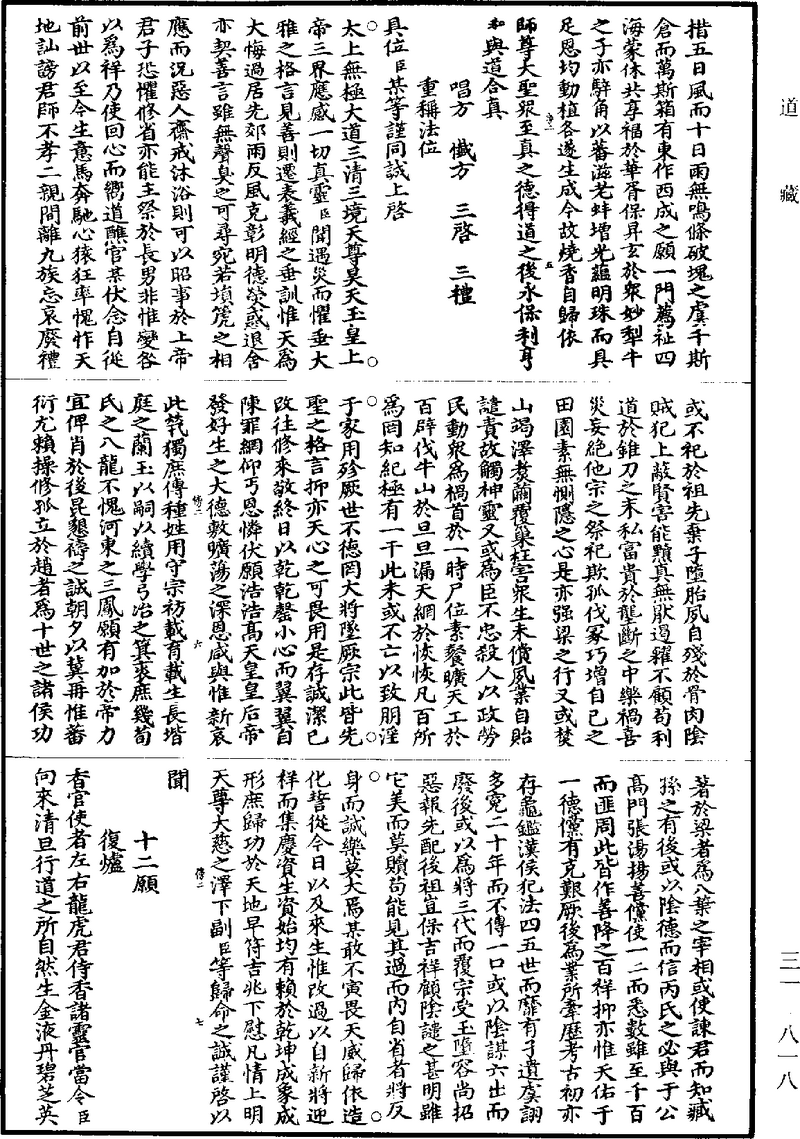 道藏
三一·八一八
措五日風而十日雨無鳴條破塊之虞千斯
倉而萬斯箱有東作西成之願一門薦祉四
海蒙休共享福於華胥保昇玄於衆妙犁牛
之子亦騂角以蕃滋老蚌增光蘊明珠而具
足恩均動植各遂生成今故燒香自歸依
師尊大聖衆至真之德得道之後永保利亨
和與道合真
唱方 懺方 三啓 三禮
重稱法位
具位臣某等謹同誠上啓
太上無極大道三清三境天尊昊天玉皇上
帝三界應感一切真靈臣聞遇災而懼垂大
雅之格言見善則遷表羲經之垂訓惟天爲
大悔過居先郊雨反風克彰明德熒惑退舍
亦契善言雖無聲臭之可尋宛若塤箎之相
應而況惡人齋戒沐浴則可以昭事於上帝
君子恐懼修省亦能主祭於長男非惟變咎
以爲祥乃使回心而嚮道醮官某伏念自從
前世以至今生意馬奔馳心猿狂率愧怍天
地訕謗君師不孝二親間離九族忘哀廢禮
或不祀於祖先棄子墮胎夙自殘於骨肉陰
賊犯上蔽賢害能黷真無猒遏糴不顧苟利
道於錐刀之末私富貴於壟斷之中樂禍喜
災妄絶他宗之祭祀欺孤伐冢巧增自已之
田園素無惻隱之心是亦强梁之行又或焚
山竭澤煑繭覆巢枉害衆生未償夙業自貽
譴責故觸神靈又或爲臣不忠殺人以政勞
民動衆爲禍首於一時尸位素餐曠天工於
百辟伐牛山於旦旦漏天網於恢恢凡百所
爲罔知紀極有一干此未或不亡以致朋淫
于家用殄厥世不德罔大將墜厥宗此皆先
聖之格言抑亦天心之可畏用是存誠潔已
改往修來敬終日以乾乾罄小心而翼翼自
陳罪網仰丐恩憐伏願浩浩高天皇皇后帝
發好生之大德敷曠蕩之深恩咸與惟新哀
此煢獨庶傳種姓用守宗祊載育載生長堦
庭之蘭玉以嗣以續學弓冶之箕裘庶幾荀
氏之八龍不愧河東之三鳳願有加於帝力
宜俾肖於後昆懇禱之誠朝夕以冀冉惟蕃
衍尢賴操修孤立於趙者爲十世之諸侯功
著於梁者爲八葉之宰相或使諫君而知臧
孫之有後或以陰德而信丙氏之必興于公
高門張湯揚善儻使一二而悉數雖至千百
而匪周此皆作善降之百祥抑亦惟天佑于
一德儻有克艱厥後爲業所牽歷考古初亦
存龜鑑漢侯犯法四五世而靡有孑遺虞詡
多寃二十年而不傳一口或以陰謀六出而
廢後或以爲將三代而覆宗受玉墮容尚招
惡報先配後祖豈保吉祥顧陰譴之甚明雖
它美而莫贖苟能見其過而内自省者將反
身而誠樂莫大焉某敢不寅畏天威歸依造
化誓從今日以及來生惟改過以自新將迎
祥而集慶資生資始均有賴於乾坤成象成
形庶歸功於天地早符吉兆下慰凡情上明
天尊大慈之澤下副臣等歸命之誠謹啓以
聞
十二願
復爐
香官使者左右龍虎君侍香諸靈官當令臣
向來清旦行道之所自然生金液丹碧芝英